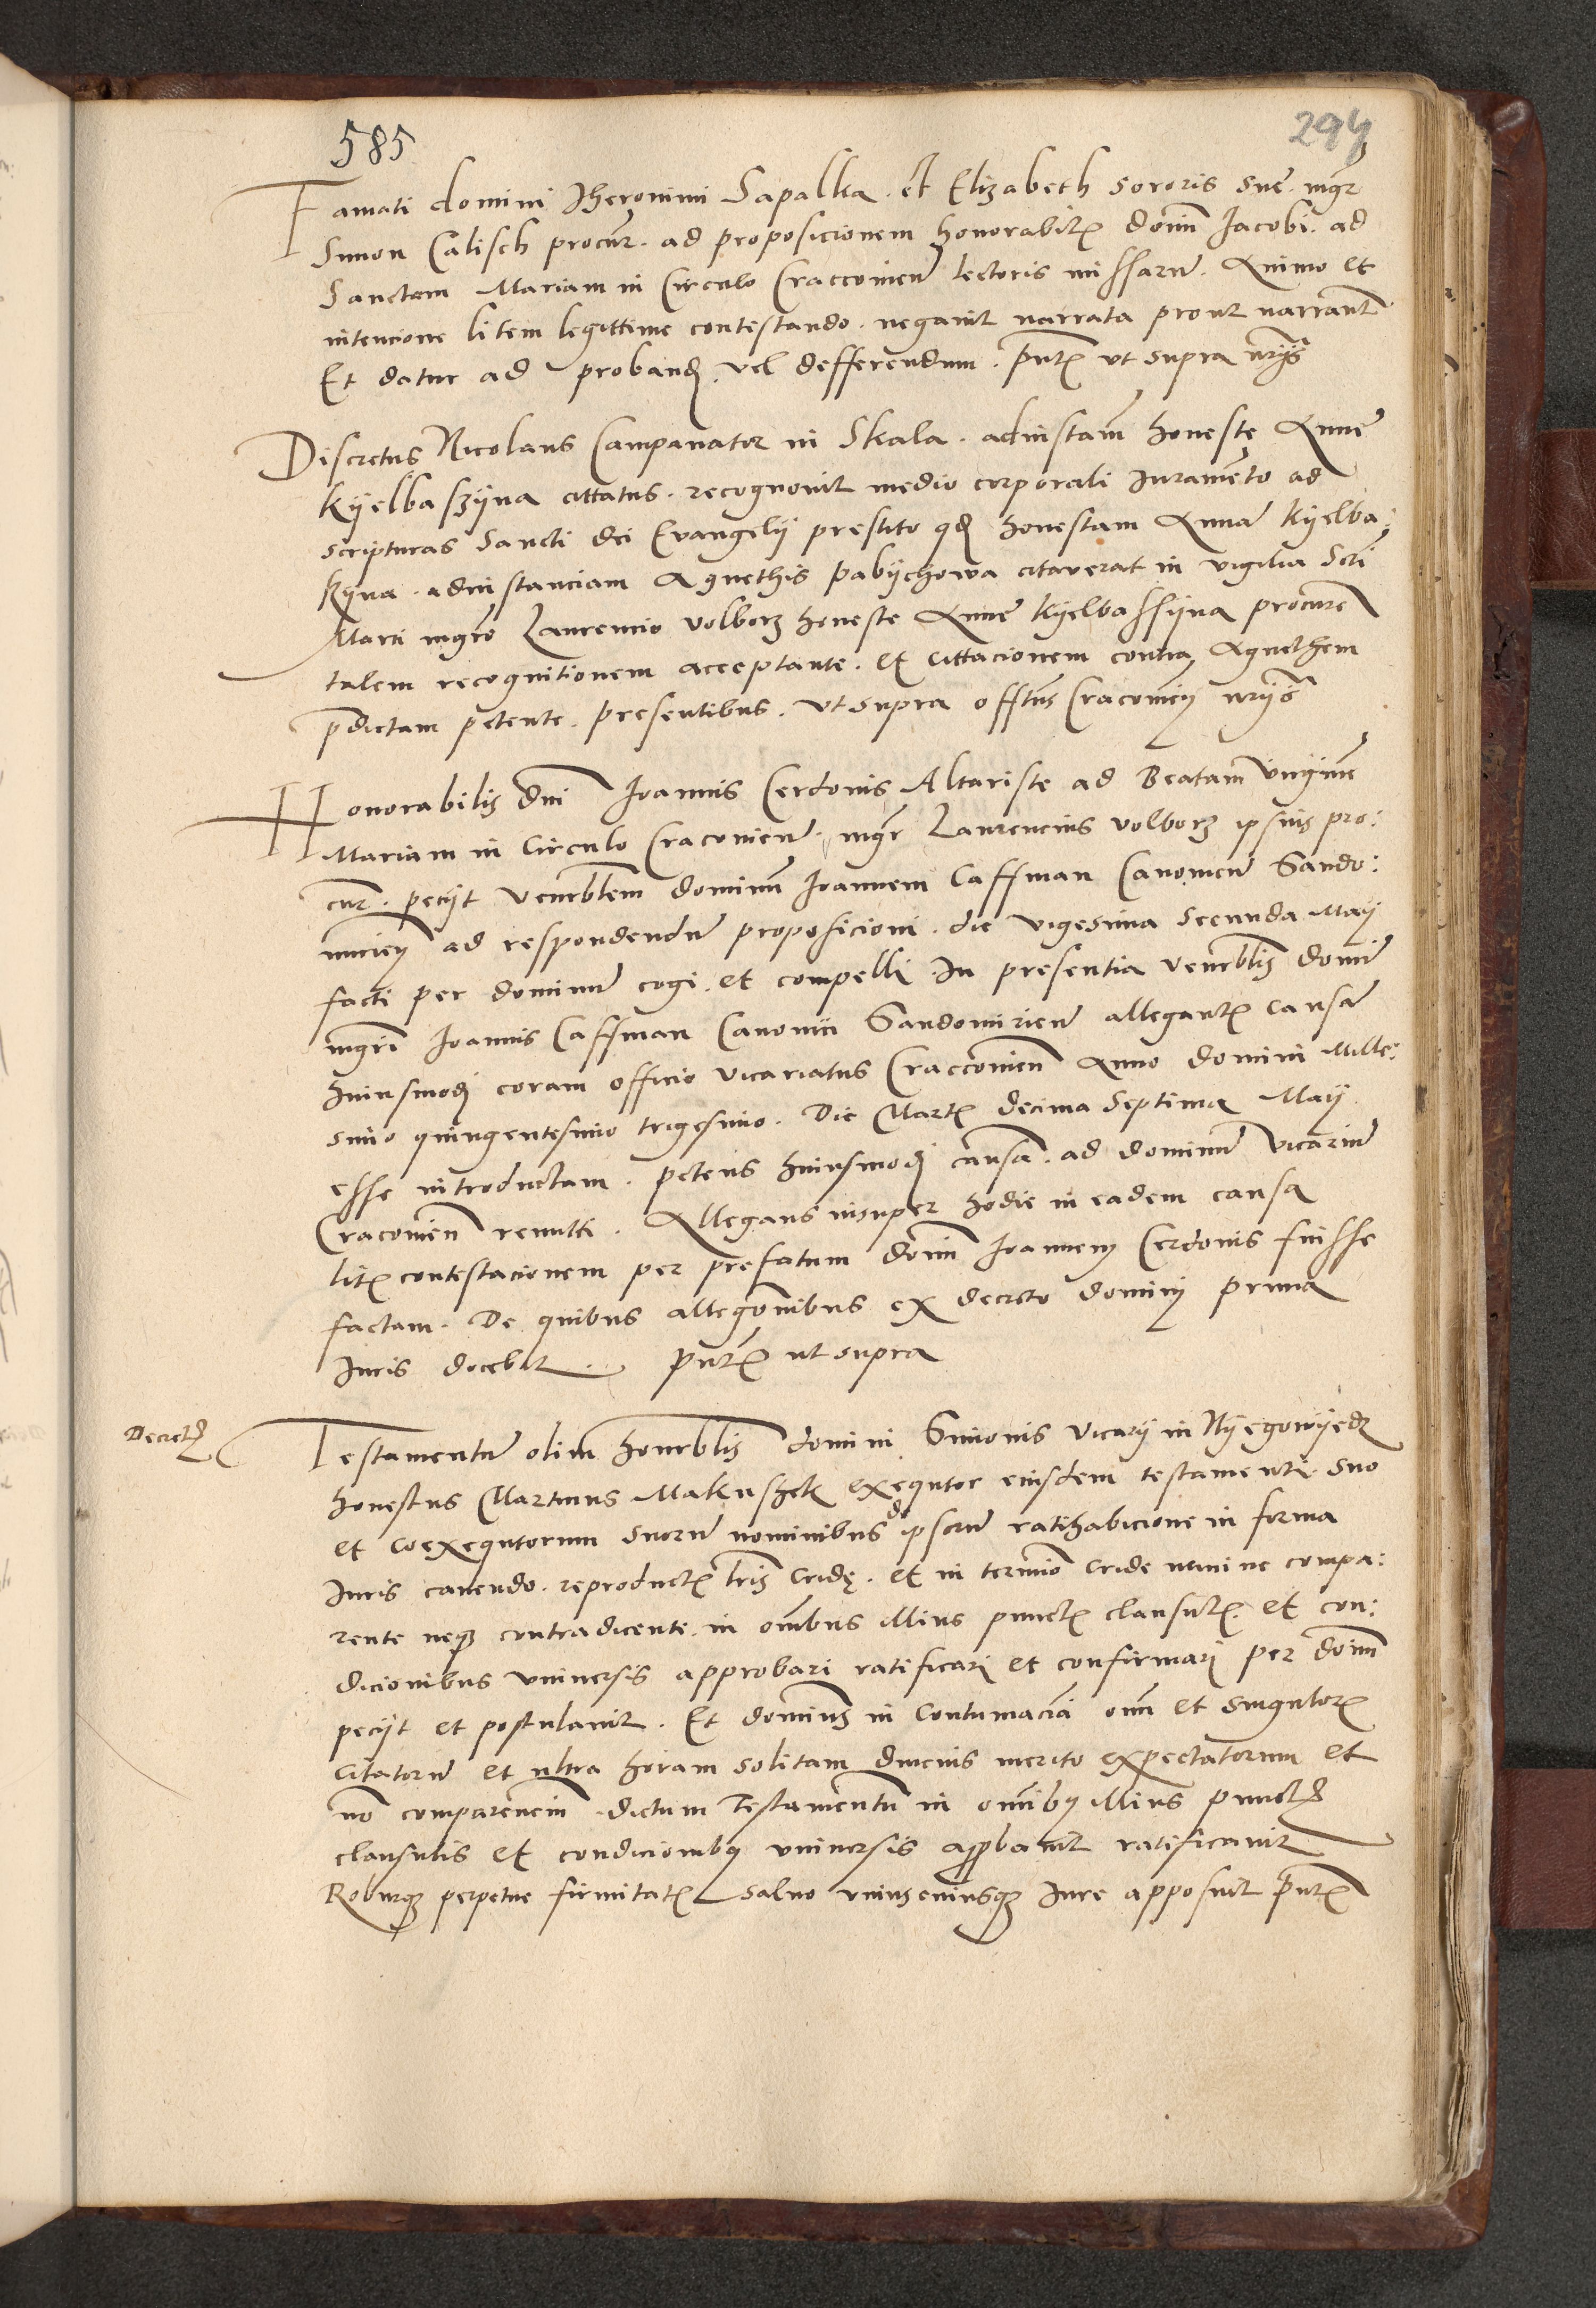 585
294
Famati domini Iheronimi Sapalka. et Elizabeth sororis sue. mgr
Simon Calisch procur. ad proposicionem honorabilis domini Iacobi. ad
Sanctam Mariam in Circulo Craccovien lectoris missarum. Animo et
intencione litem legittime contestando. negavit narrata prout narrant
Et datur ad proband. vel defferendum. pntes ut supra
Discretus Nicolaus Campanator in Skala. ad instam honeste Anne
Kyelbaszyna cittatus. recognovit medio corporali Iuramento ad
scripturas Sancti dei Evangelij prestito qd honestam Annam Kyelba:
szyna. ad instanciam Agnethis pabychowa citaverat in vigilia Scti
Marci mgro Laurencio Volborz honeste Anne Kyelbassyna procure
talem recognitionem acceptante. et Cittacionem contra Agnethem
pdictam petente. presentibus. ut supra offtus Cracovien
Honorabilis dni Ioannis Cerdonis Altariste ad Beatam virginem
Mariam in Circulo Cracovien. mgr Laurencius Volborz ipsius pro:
cur. peciit Venerblem dominum Ioannem Caffman Canonicum Sando:
mirien ad respondendum proposicioni. die vigesima secunda May
facti per dominum cogi. et compelli. In presentia venerblis domini
mgri Ioannis Caffman Canonici Sandomirien allegantis Causam
huiusmodi coram officio Vicariatus Craccovien Anno domini Mille:
simo quingentesimo trigesimo. Die Martis decima Septima May
esse introductam. petens huiusmodi causam. ad dominum Vicarium
Cracovien remitti. Allegans insuper hodie in eadem causa
litis contestacionem per prefatum dominum Ioannem Cerdonis fuisse
factam. De quibus allegonibus ex decreto domini prima
Iuris docebit. pntes ut supra
Decret
Testamentum olim honrblis domini Simonis Vicarij in Nyegowyedz
honestus Martinus Makuszek exequtor eiusdem testamenti suo
et Coexequtorum suorum nominibus de ipsorum ratihabicione in forma
Iuris cavendo. reproductis lris Cride. et in termino Cride nemine compa:
rente neque contradicente. in omnibus illius punctis clausulis. et con:
dicionibus universis approbari ratificari et confirmari per dominum
peciit et postulavit. Et dominus in Contumaciam omnium et singulorum
Citatorum et ultra horam solitam diucius merito expectatorum et
non comparencium. dictum Testamentum in omnibus illius punctis
clausulis et condicionibus universis approbavit ratificavit
Roburque perpetue firmitatis salvo uniuscuiusque Iure apposuit pntes